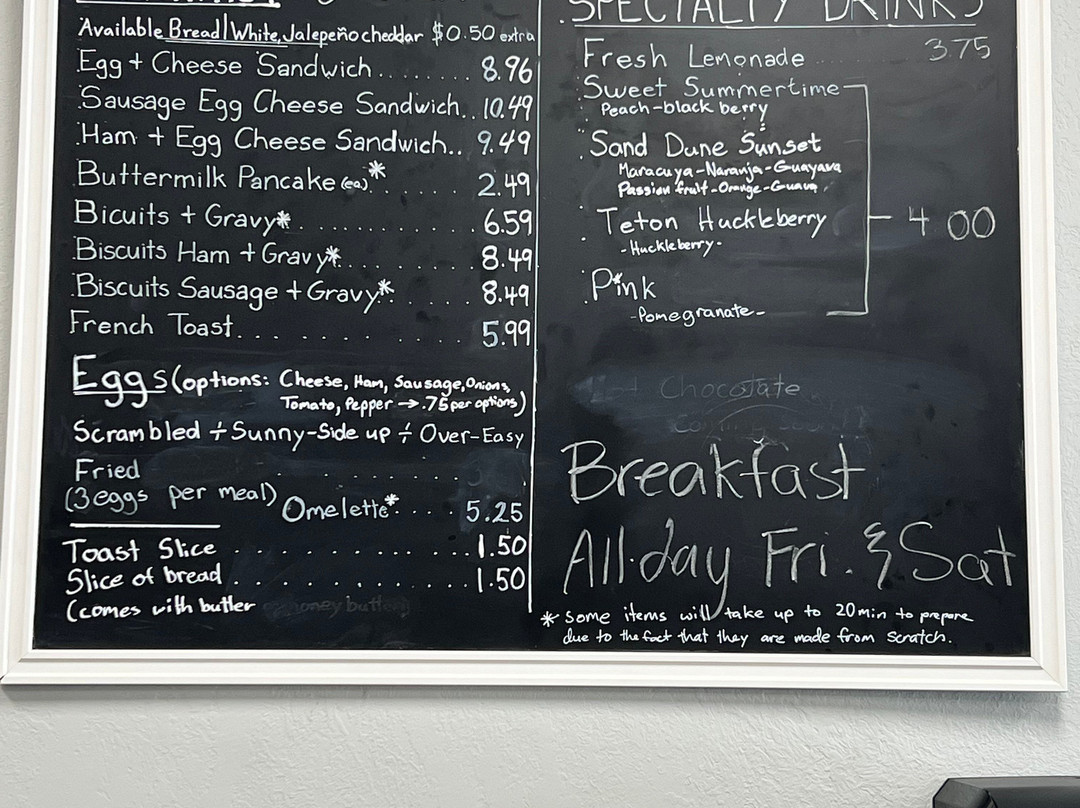 Available Bread | White, Jalepeño cheddar $0.50 extra
Egg + Cheese Sandwich........ 8.96
Sausage Egg Cheese Sandwich.. 10.49
Ham + Egg Cheese Sandwich.. 9.49
Buttermilk Pancake (ea)*...... 2.49
Bicuits + Gravy*............. 6.59
Biscuits Ham + Gravy*......... 8.49
Biscuits Sausage + Gravy*...... 8.49
French Toast............ 5.99
Eggs (options: Cheese, Ham, Sausage, Onions,
Tomato, Pepper → .75 per options)
Scrambled ÷ Sunny-Side up ÷ Over-Easy
Fried ........
(3 eggs per meal) Omelette*..... 5.25
Toast Slice ............. 1.50
Slice of bread ............. 1.50
(comes with butler honey butter)
SPECIALTY DRINKS
Fresh Lemonade ........ 3.75
Sweet Summertime
Peach-black berry
Sand Dune Sunset
Maracuya-Naranja-Guayava
Passion fruit-Orange-Guava
Teton Huckleberry
-Huckleberry-
4.00
Pink
-Pomegranate-
Chocolate
Breakfast
All day Fri. & Sat
* Some items will take up to 20min to prepare
due to the fact that they are made from scratch.